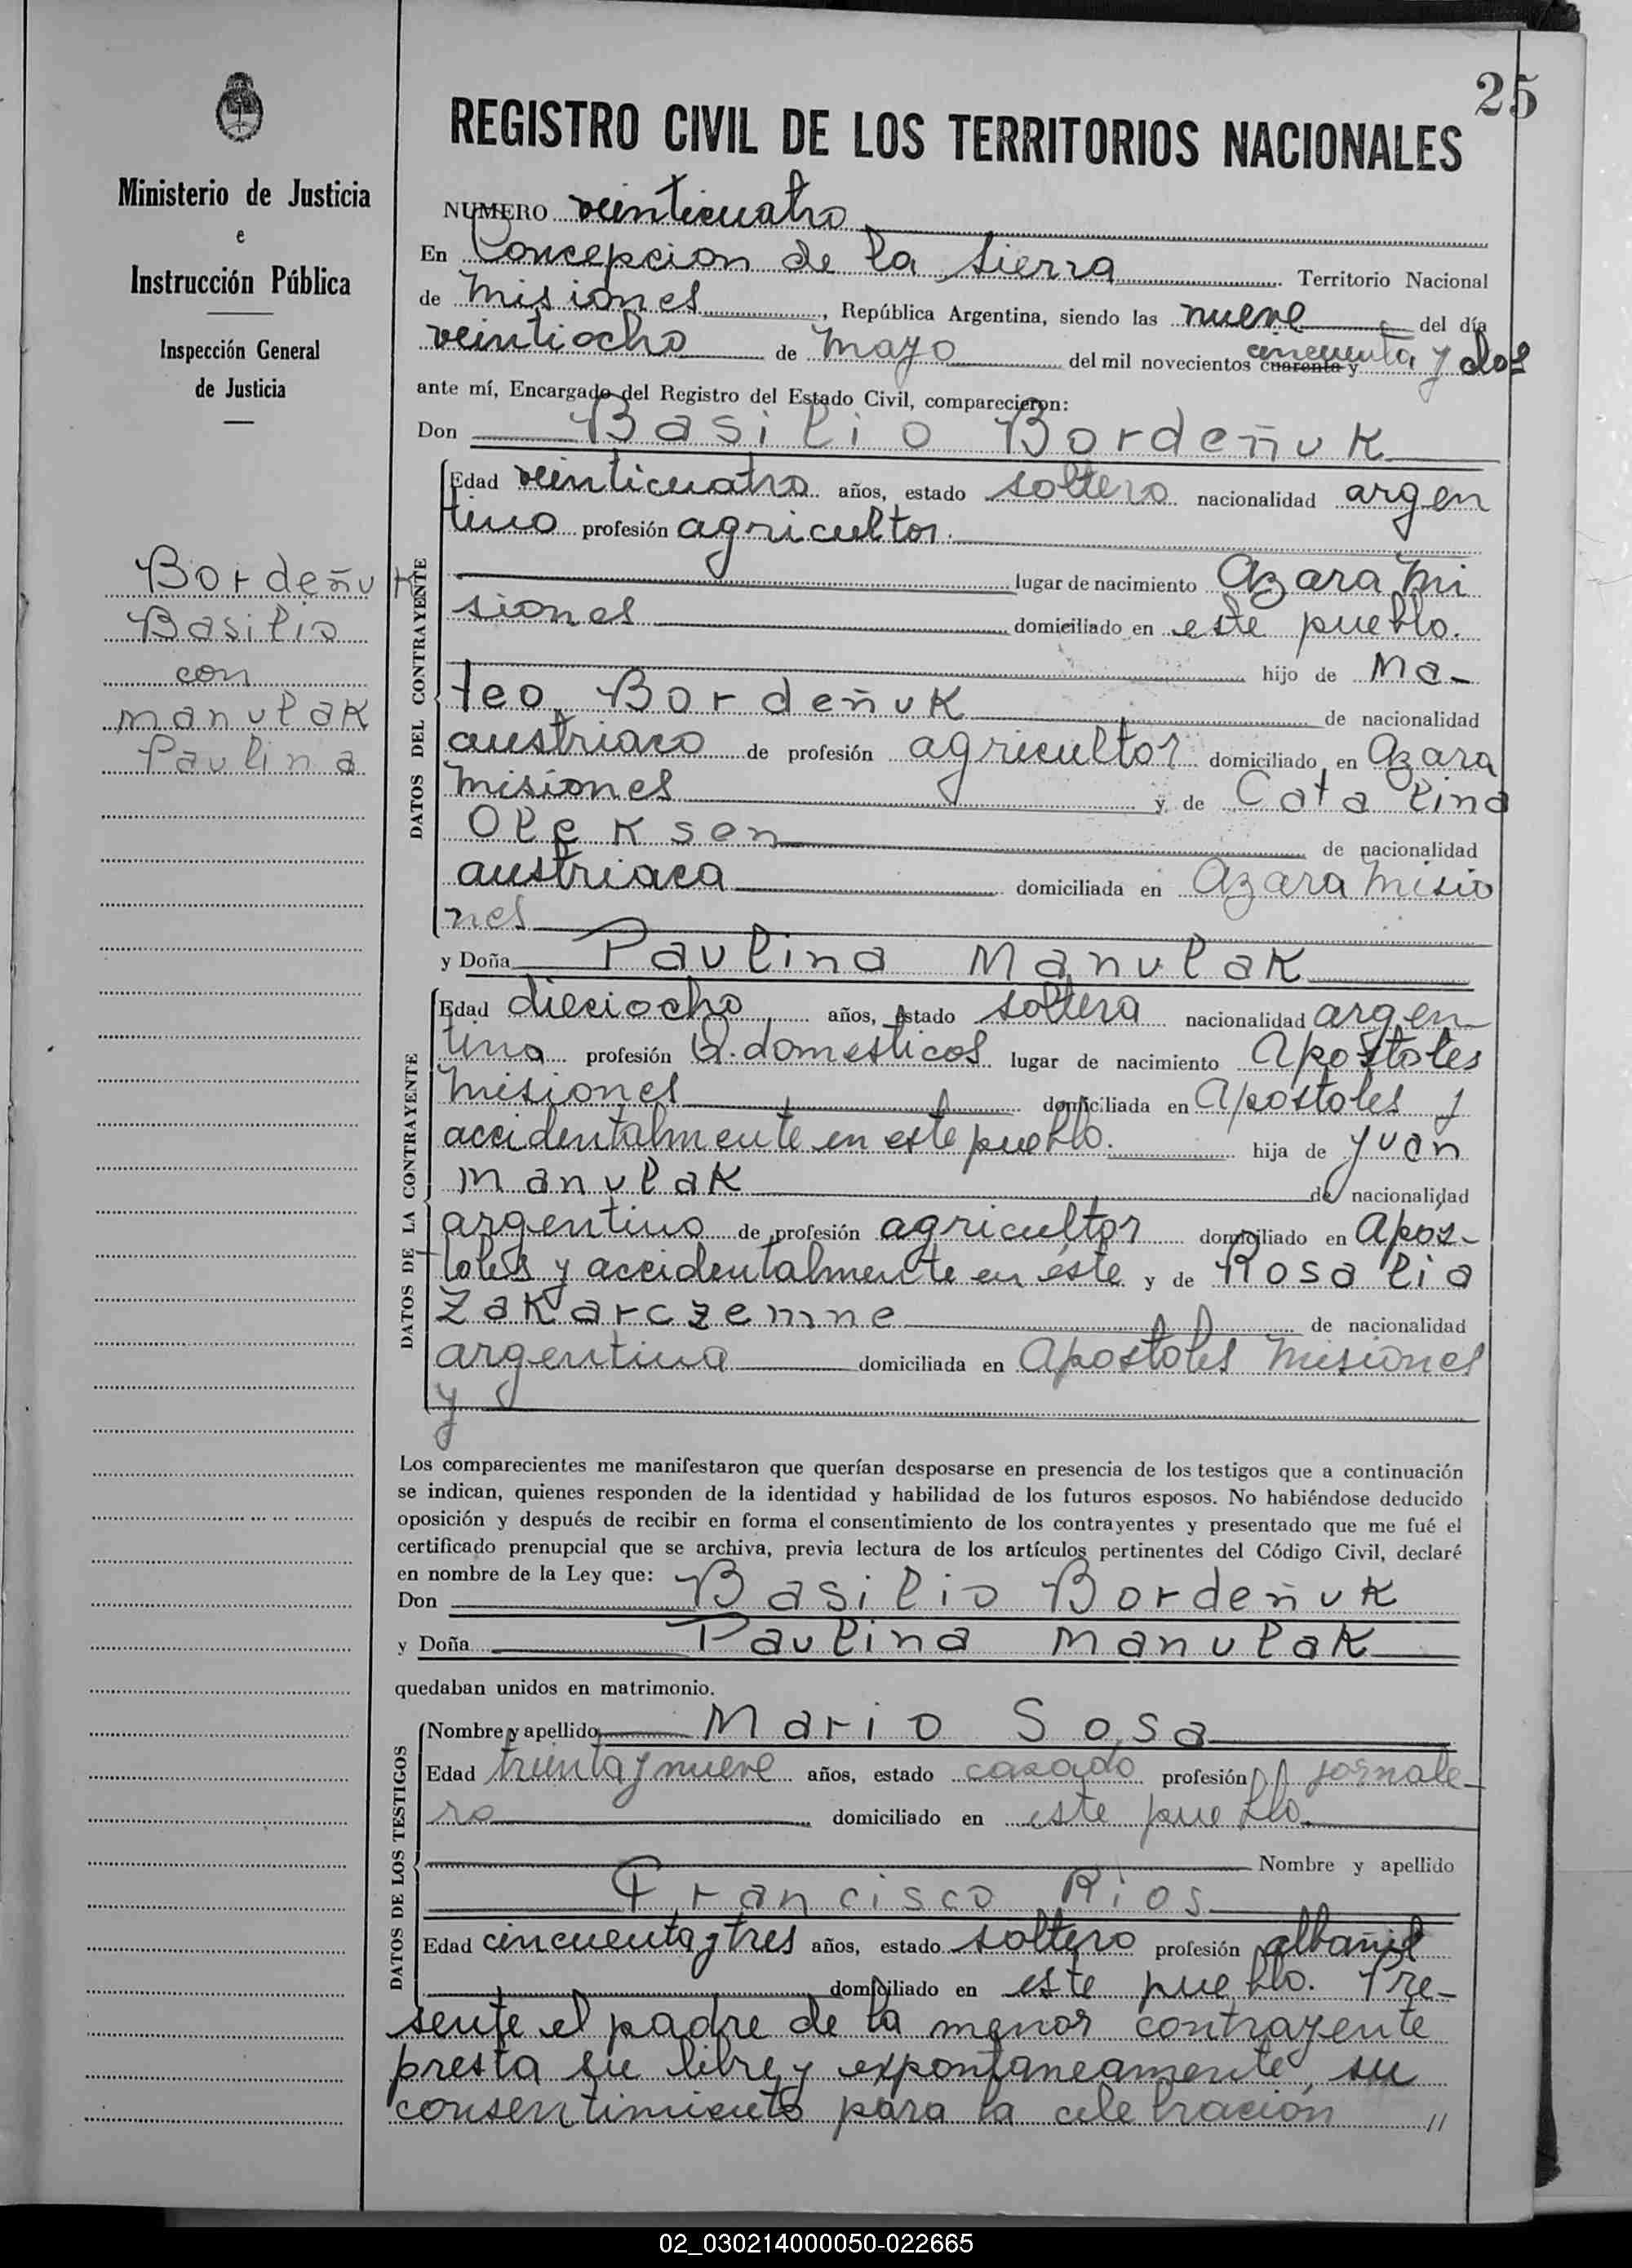 25
Ministerio de Justicia
e
Instrucción Pública
Inspección General
de Justicia
Bordeñuk
Basilio
con
Manulak
Paulina
REGISTRO CIVIL DE LOS TERRITORIOS NACIONALES
NUMERO veinticuatro
En Concepcion de la Sierra Territorio Nacional
de Misiones, República Argentina, siendo las nueve del día
veintiocho de Mayo del mil novecientos cuarenta y cincuenta y dos
ante mí, Encargado del Registro del Estado Civil, comparecieron:
Don Basilio Bordeñuk
DATOS DEL CONTRAYENTE
Edad veinticuatro años, estado soltero nacionalidad argen
tino profesión agricultor.
lugar de nacimiento Azara Mi
siones domiciliado en este pueblo.
hijo de Ma-
teo Bordeñuk de nacionalidad
austriaco de profesión agricultor domiciliado en Azara
Misiones y de Catalina
Oleksen de nacionalidad
austriaca domiciliada en Azara Misio
nes
y Doña Paulina Manulak
DATOS DE LA CONTRAYENTE
Edad dieciocho años, estado soltera nacionalidad argen-
tina profesión Q. domesticos lugar de nacimiento Apostoles
Misiones domiciliada en Apostoles y
accidentalmente en este pueblo. hija de Juan
Manulak de nacionalidad
argentino de profesión agricultor domiciliado en Apos-
toles y accidentalmente en éste y de Rosalia
Zakarczemne de nacionalidad
argentina domiciliada en Apostoles Misiones
y
Los comparecientes me manifestaron que querían desposarse en presencia de los testigos que a continuación
se indican, quienes responden de la identidad y habilidad de los futuros esposos. No habiéndose deducido
oposición y después de recibir en forma el consentimiento de los contrayentes y presentado que me fué el
certificado prenupcial que se archiva, previa lectura de los artículos pertinentes del Código Civil, declaré
en nombre de la Ley que:
Don Basilio Bordeñuk
y Doña Paulina Manulak
quedaban unidos en matrimonio.
DATOS DE LOS TESTIGOS
Nombre y apellido Mario Sosa
Edad treinta y nueve años, estado casado profesión jornale-
ro domiciliado en este pueblo.
Nombre y apellido
Francisco Rios
Edad cincuenta y tres años, estado soltero profesión albañil
domiciliado en este pueblo. Pre-
sente el padre de la menor contrayente
presta su libre y expontaneamente, su
consentimiento para la celebración //
02_030214000050-022665